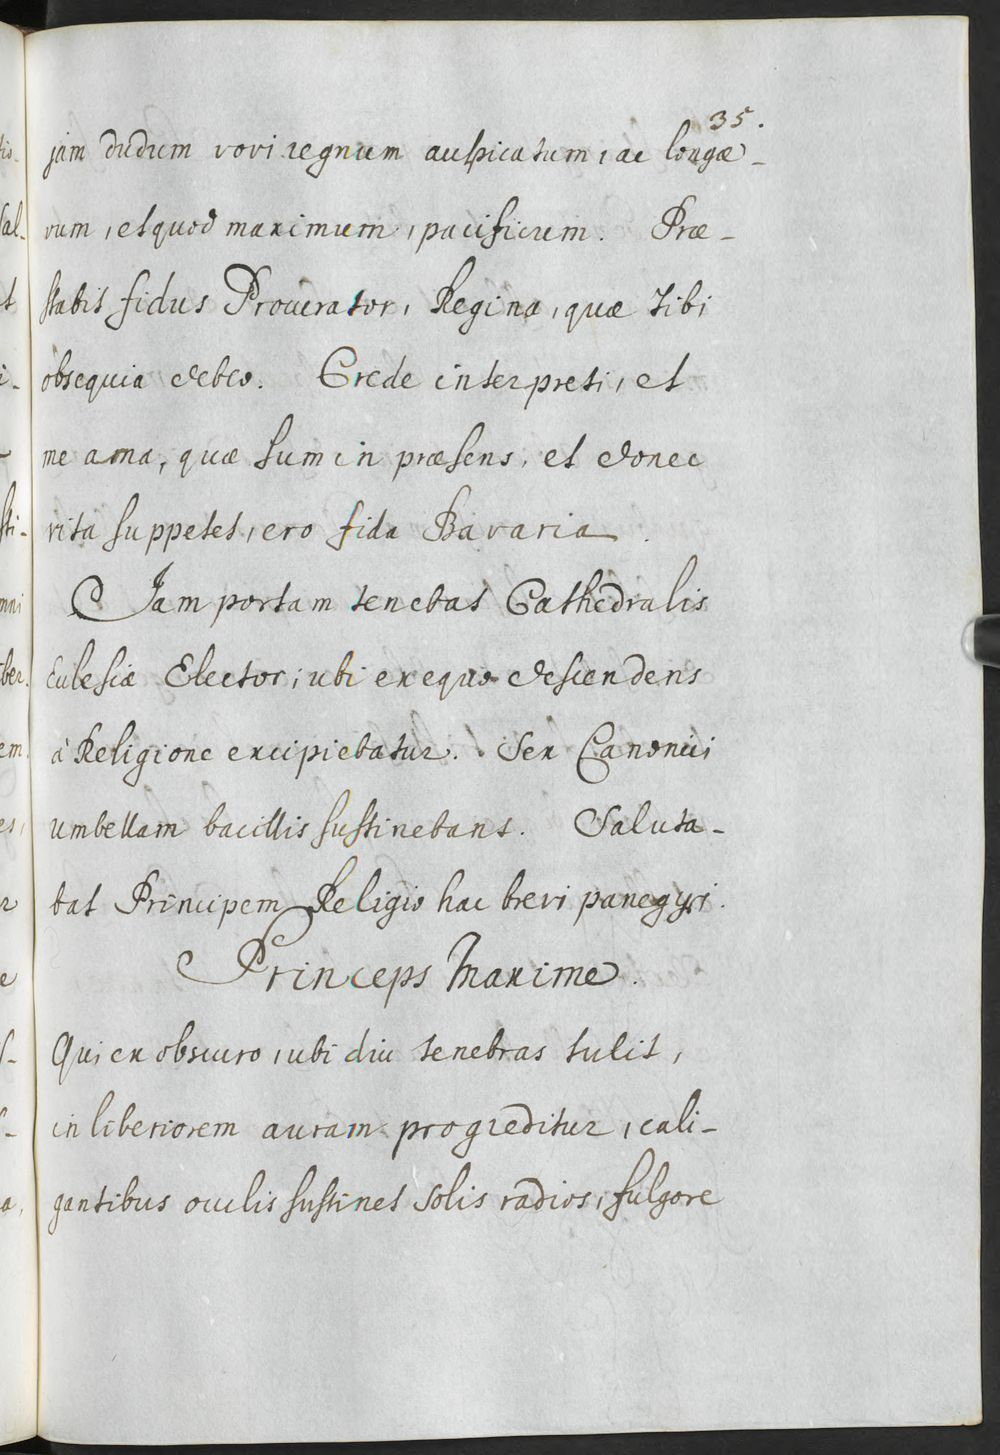 35.
jam dudum vovi regnum auspicatum, ac longæ-
vum, et quod maximum, pacificum. Præ-
stabit fidus Procurator, Regina, quæ tibi
obsequia debeo. Crede interpreti, et
me ama, quæ sum in præsens, et donec
vita suppetet, ero fida Bavaria.
Jam portam tenebat Cathedralis
Eclesiæ Elector, ubi ex equo descendens
à Religione excipiebatur. Sex Canonici
umbellam bacillis sustinebant. Saluta-
bat Principem Religio hac brevi panegyri.
Princeps Maxime.
Qui ex obscuro, ubi diu tenebras tulit,
in liberiorem auram progreditur, cali-
gantibus oculis sustinet solis radios, fulgore